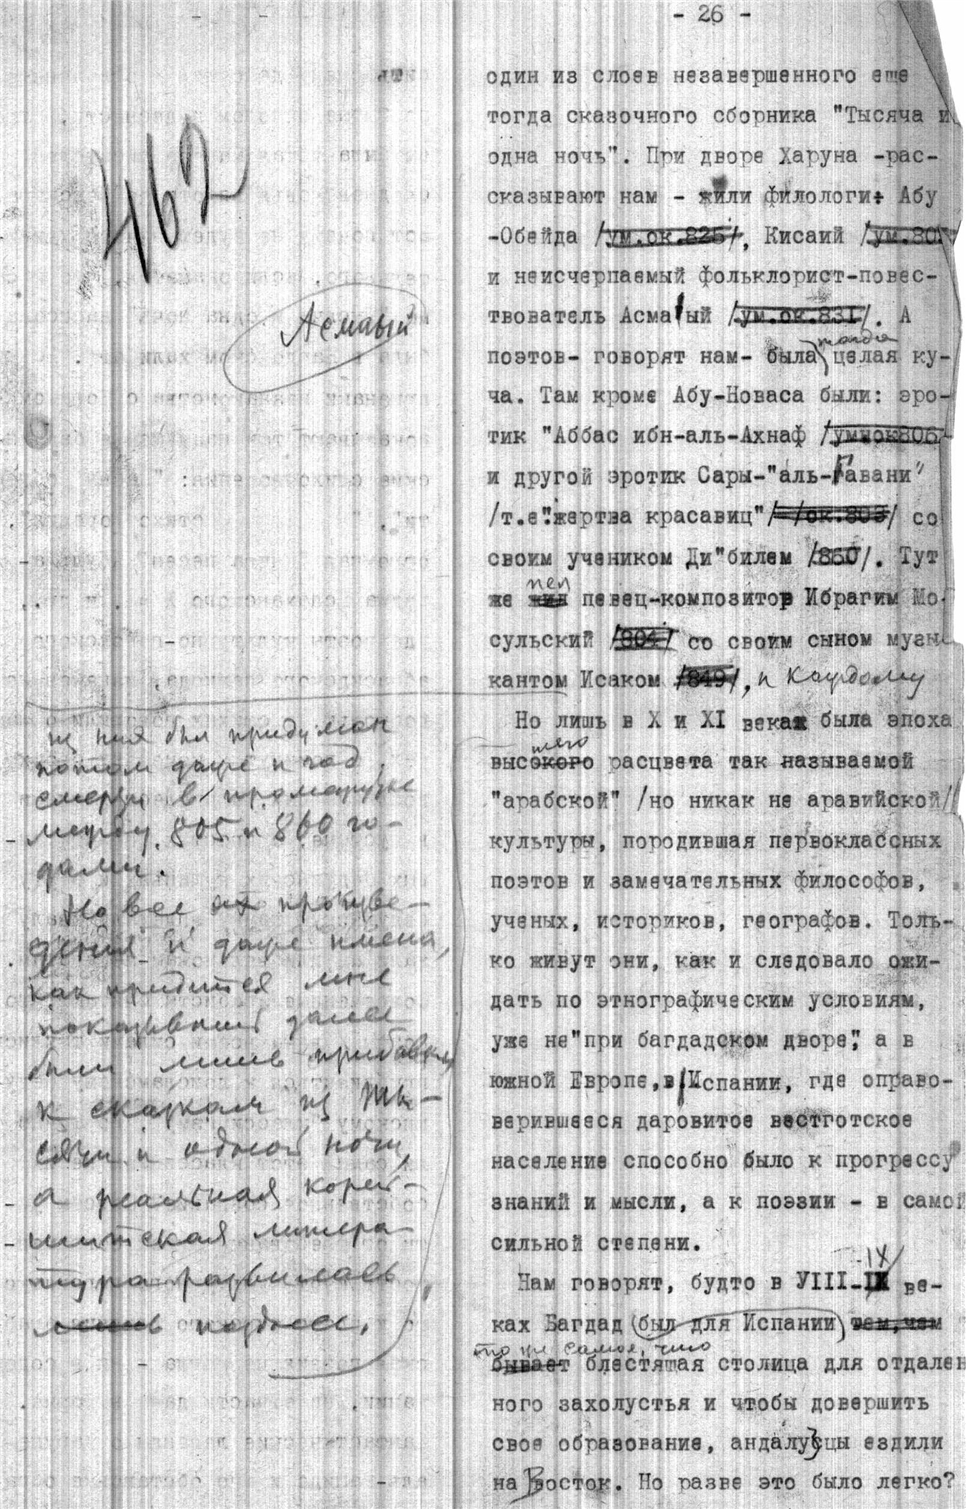 - 26 -
462
Асмаый
один из слоев незавершенного еще
тогда сказочного сборника "Тысяча и
одна ночь". При дворе Харуна -рас-
сказывают нам - жили филологи: Абу
-Обейда /ум.ок.825/, Кисаий /ум.80
и неисчерпаемый фольклорист-повес-
твователь Асма ый /ум.ок.831/. А
поэтов- говорят нам- была тогда целая ку-
ча. Там кроме Абу-Новаса были: эро-
тик "Аббас ибн-аль-Ахнаф /умиок806
и другой эротик Сары-"аль-Гавани"
/т.е."жертва красавиц"/ /ок.803/ со
своим учеником Ди"билем /860/. Тут
же жил пел певец-композитор Ибрагим Мо-
сульский /804/ со своим сыном музы-
кантом Исаком /849/, и каждому
из них был придуман
потом даже и год
смерти в промежутке
между 805 и 860 го-
дами.
Но все их произве-
дения и даже имена,
как придется мне
показывать далее
были лишь прибавкам
к сказкам из Ты-
сячи и одной ночи,
а реальная корей-
шитская литера-
тура развилась
лишь позднее.
Но лишь в X и XI веках была эпоха
высокого шего расцвета так называемой
"арабской" /но никак не аравийской/
культуры, породившая первоклассных
поэтов и замечательных философов,
ученых, историков, географов. Толь-
ко живут они, как и следовало ожи-
дать по этнографическим условиям,
уже не "при багдадском дворе", а в
южной Европе, в Испании, где оправо-
верившееся даровитое вестготское
население способно было к прогрессу
знаний и мысли, а к поэзии - в самой
сильной степени.
Нам говорят, будто в УІІІ-IX ве-
ках Багдад был для Испании тем, чем
то же самое, что
бывает блестящая столица для отдален
ного захолустья и чтобы довершить
свое образование, андалузцы ездили
на Восток. Но разве это было легко?